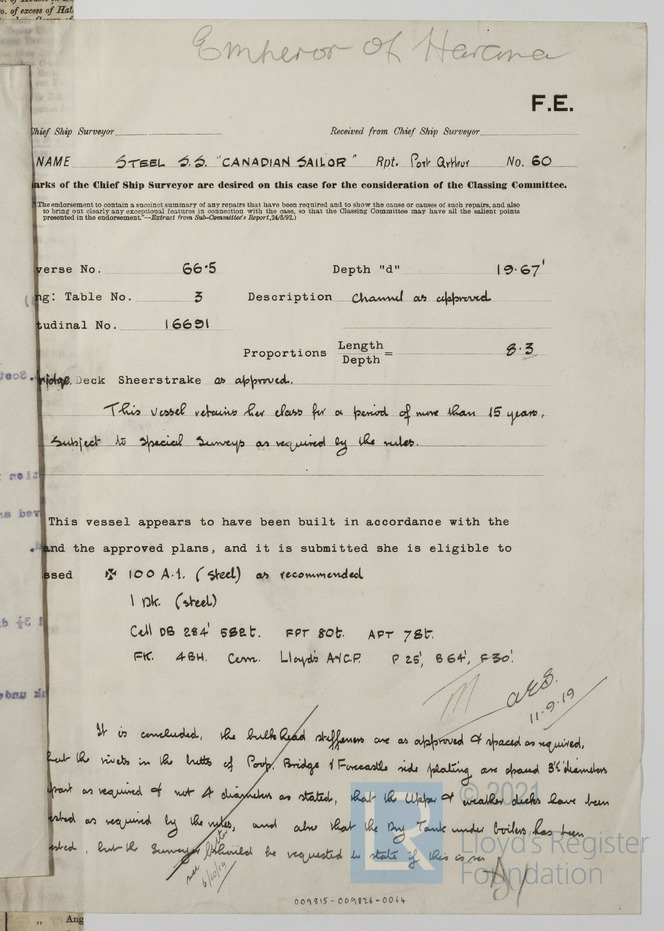 o. of excess of Hat
Emperor of Havana
F.E.
Chief Ship Surveyor Received from Chief Ship Surveyor
NAME STEEL S.S. "CANADIAN SAILOR" Rpt. Port Arthur No. 60
arks of the Chief Ship Surveyor are desired on this case for the consideration of the Classing Committee.
The endorsement to contain a succinct summary of any repairs that have been required and to show the cause or causes of such repairs, and also
to bring out clearly any exceptional features in connection with the case, so that the Classing Committee may have all the salient points
presented in the endorsement."—Extract from Sub-Committee's Report, 24/5/92.)
verse No. 66·5 Depth "d" 19·67'
ng: Table No. 3 Description Channel as approved
tudinal No. 16691
Proportions Length
Depth = 8·3
ridge Deck Sheerstrake as approved.
This vessel retains her class for a period of more than 15 years,
subject to Special Surveys as required by the rules.
This vessel appears to have been built in accordance with the
and the approved plans, and it is submitted she is eligible to
ssed ✠ 100 A.1. (Steel) as recommended
1 Dk. (steel)
Cell DB 284' 582t. FPT 80t. APT 78t.
FK. 4BH. Cem. Lloyd's A&CP. P 25', B 64', F 30'.
11-9-19
It is concluded, the bulkhead stiffeners are as approved & spaced as required,
that the rivets in the butts of Poop, Bridge & Forecastle side plating are spaced 3½ diameters
part as required & not 4 diameters as stated, that the Upper & weather decks have been
ested as required by the rules, and also that the Dry Tank under boilers has been
ested, but the Surveyor should be requested to state if this is so
6/10/19
© 2021
LR
Lloyd's Register
Foundation
009815-009826-0064
" Aug